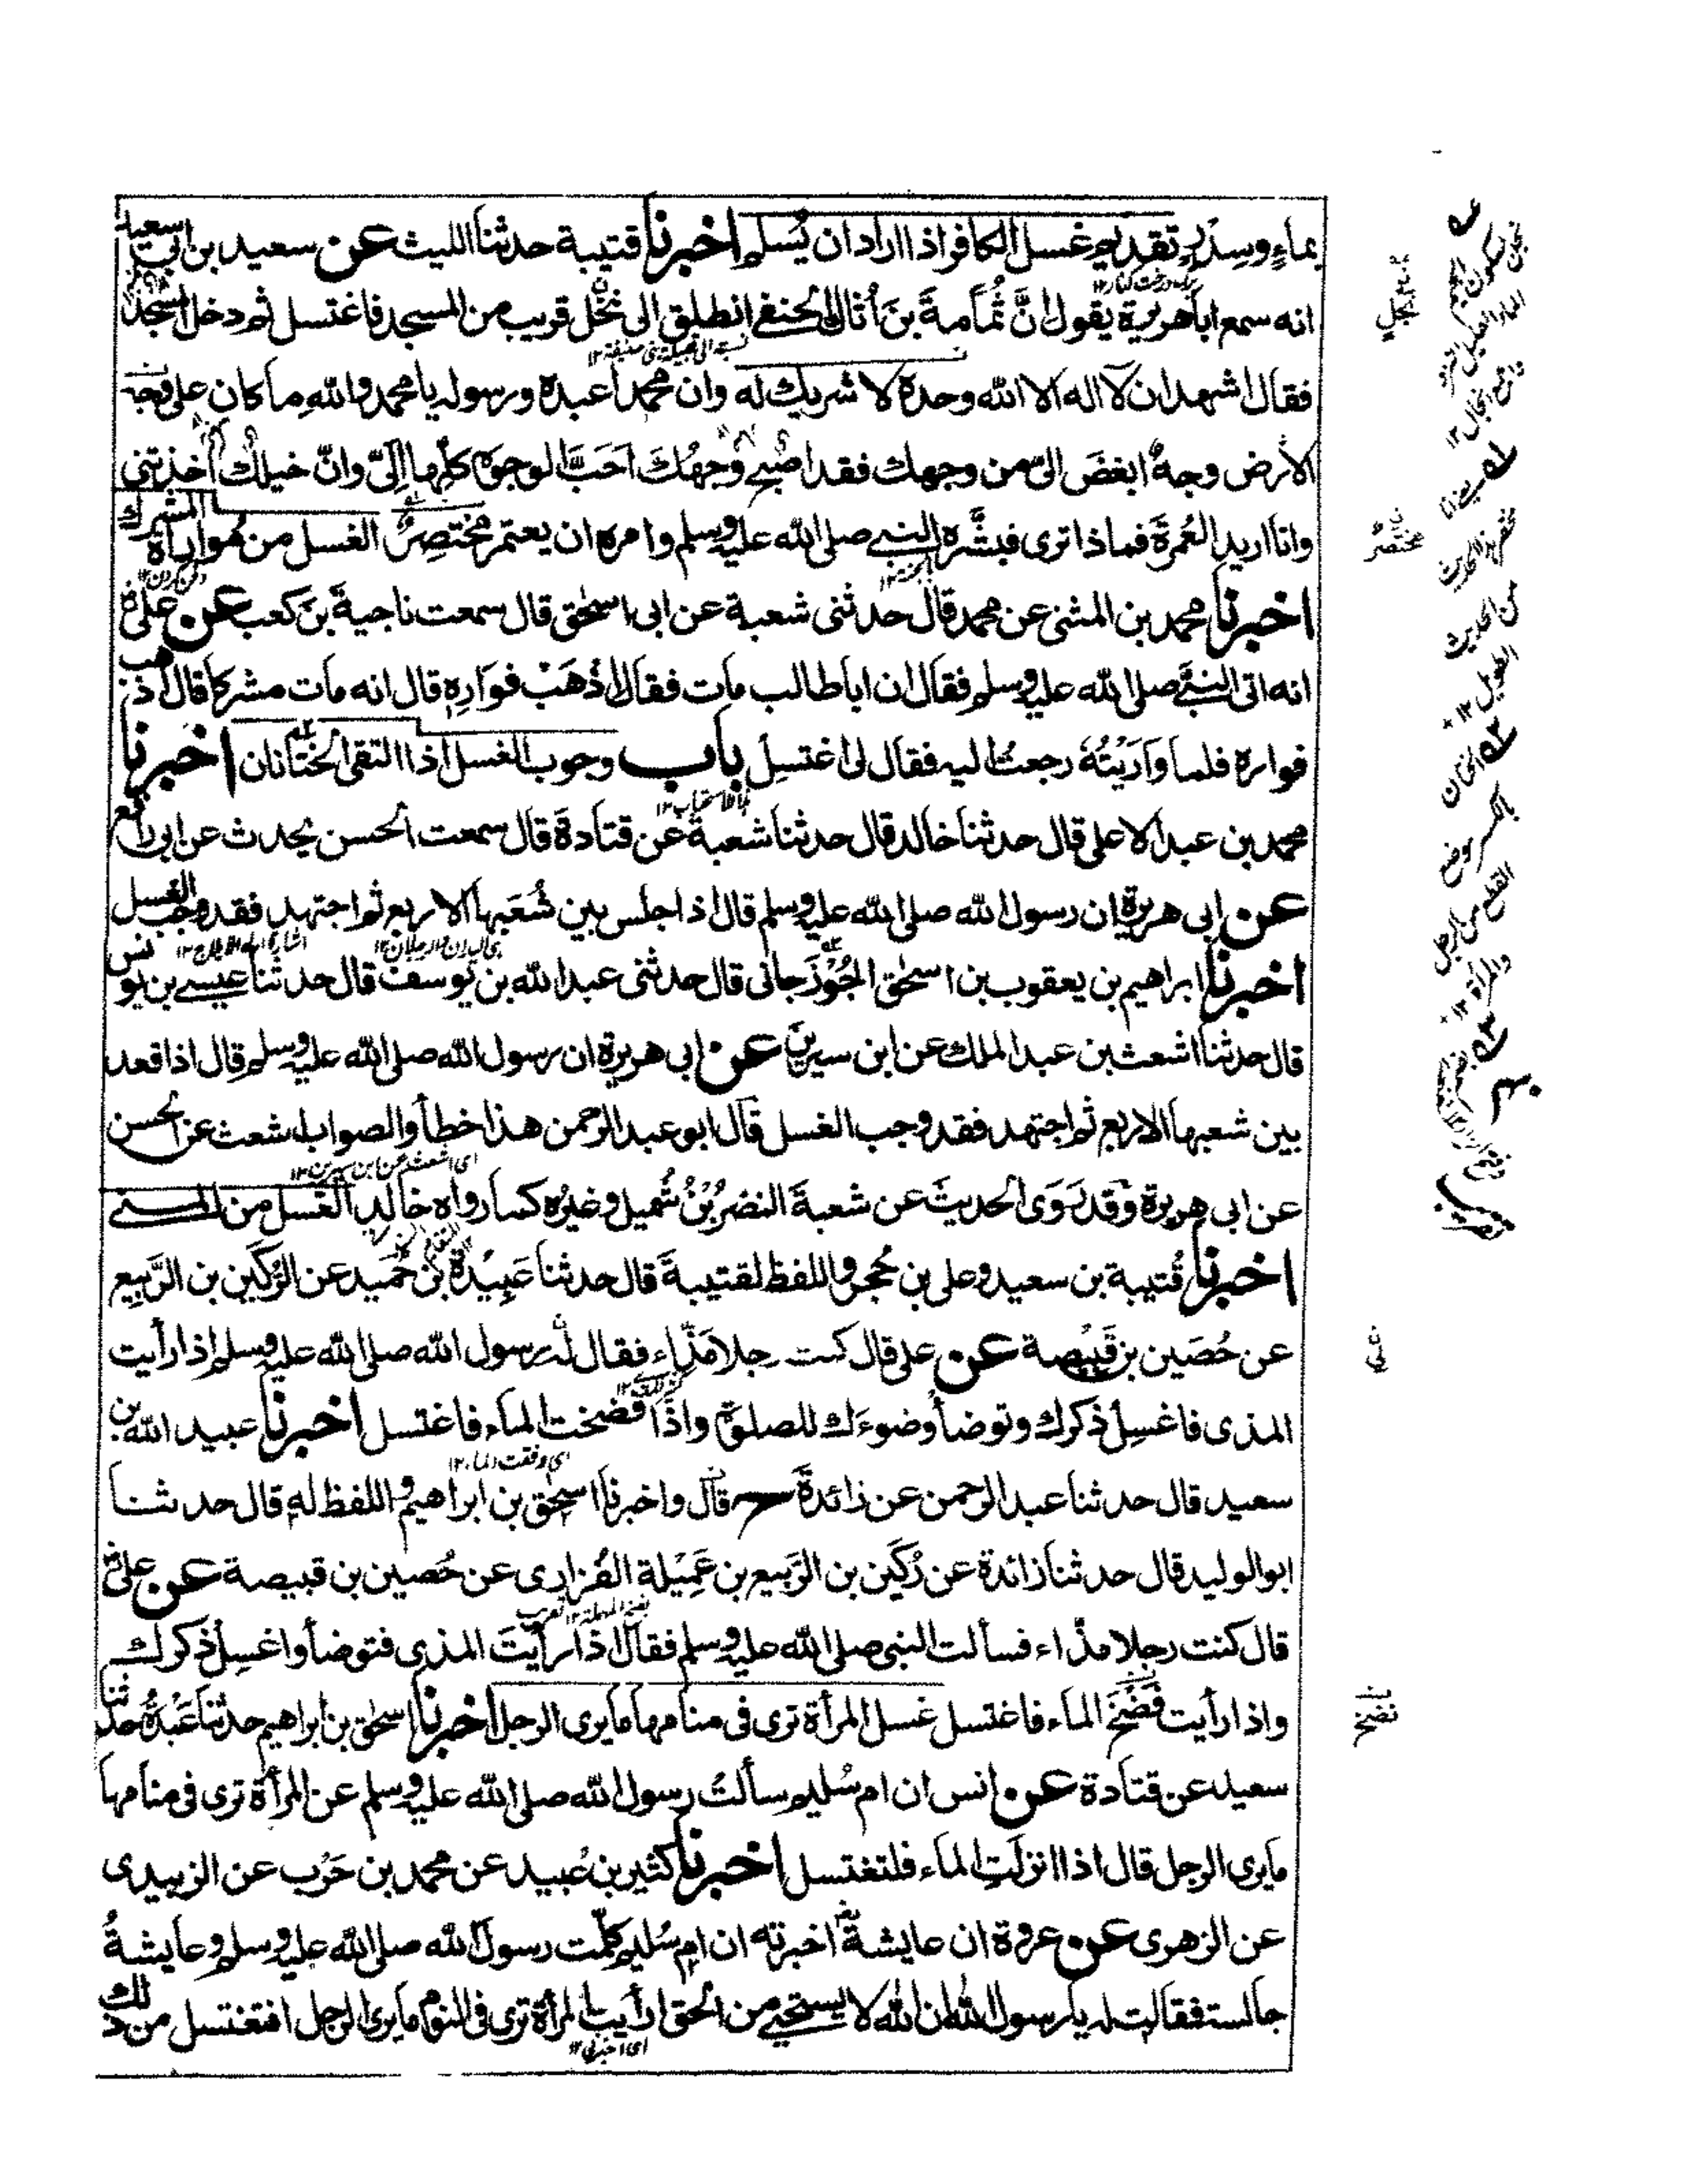 بماءٍ وسِدْرٍ تقديم غسل الكافر اذا اراد ان يُسلم اخبرنا قتيبة حدثنا الليث عن سعيد بن ابي سعيد
انه سمع اباهريرة يقول انَّ ثُمامةَ بنَ اُثال الحنفي انطلق الى نخل قريب من المسجد فاغتسل ثم دخل المسجد
فقال اشهد ان لا اله الا الله وحدة لا شريك له وان محمدا عبدة ورسوله يا محمد والله ما كان على وجه
الارض وجهٌ ابغضَ الىّ من وجهك فقد اصبح وجهُكَ احَبَّ الوجوه كلّها اِلىّ وانّ خيلك اخذتنى
وانا اريد العُمرةَ فماذا ترى فبشَّره النبي صلى الله عليه وسلم وامره ان يعتمر مختصِرٌ الغسل من مُواراة المشرك
اخبرنا محمد بن المثنى عن محمد قال حدثنى شعبة عن ابى اسحٰق قال سمعت ناجيةَ بنَ كعب عن علىّ
انه اتى النبىَّ صلى الله عليه وسلم فقال ان اباطالب مات فقال اذْهَبْ فوارِهِ قال انه مات مشركا قال اذهب
فواره فلما وَارَيْتُهٗ رجعتُ اليه فقال لى اغتسِلْ باب وجوب الغسل اذا التقى الختانان اخبرنا
محمد بن عبد الاعلى قال حدثنا خالد قال حدثنا شعبة عن قتادةَ قال سمعت الحسن يحدث عن ابى رافع
عن ابى هريرة ان رسول الله صلى الله عليه وسلم قال اذا جلس بين شُعَبِها الاربع ثم اجتهد فقد وجب الغسل
اخبرنا ابراهيم بن يعقوب بن اسحٰق الجُوْزَجانى قال حدثنى عبد الله بن يوسف قال حدثنا عيسى بن يونس
قال حدثنا اشعث بن عبد الملك عن ابن سيرين عن ابى هريرة ان رسول الله صلى الله عليه وسلم قال اذا قعد
بين شعبها الاربع ثم اجتهد فقد وجب الغسل قال ابو عبد الرحمن هذا خطأ والصواب اشعث عن الحسن
عن ابى هريرة وقد رَوَى الحديثَ عن شعبةَ النضرُ بْنُ شُميل وغيرُه كما رواه خالد الغسل من المنى
اخبرنا قُتيبة بن سعيد وعلى بن حُجر واللفظ لقتيبةَ قال حدثنا عَبِيْدَةُ بن حُميد عن الرُّكَين بن الرَّبِيع
عن حُصَين بن قَبِيْصة عن على قال كنت رجلا مَذّاء فقال له رسول الله صلى الله عليه وسلم اذا رأيت
المذى فاغسِلْ ذكرك وتوضأْ وضوءَك للصلوة واذا فضخت الماء فاغتسل اخبرنا عبيد الله بن
سعيد قال حدثنا عبد الرحمن عن زائدةَ ح قال واخبرنا اسحٰق بن ابراهيم واللفظ له قال حدثنا
ابو الوليد قال حدثنا زائدة عن رُكَين بن الرَّبيع بن عَمِيْلة الفَزارى عن حُصين بن قبيصة عن علىّ
قال كنت رجلا مذّاء فسألت النبى صلى الله عليه وسلم فقال اذا رأيتَ المذى فتوضأ واغسِلْ ذكرك
واذا رأيت فَضْخَ الماء فاغتسل غسل المرأة ترى فى منامها ما يرى الرجل اخبرنا اسحٰق بن ابراهيم حدثنا عَبْدَةُ حدثنا
سعيد عن قتادة عن انس ان ام سُليم سألتْ رسول الله صلى الله عليه وسلم عن المرأة ترى فى منامها
ما يرى الرجل قال اذا انزلَتِ الماء فلتغتسل اخبرنا كثير بن عُبيد عن محمد بن حَرْب عن الزبيدى
عن الزهرى عن عروة ان عايشة اخبرته ان ام سُليم كلّمت رسول الله صلى الله عليه وسلم وعايشةُ
جالسة فقالت له يا رسول الله ان الله لا يستحيى من الحق ارأيت المرأة ترى فى النوم ما يرى الرجل افتغتسل من ذلك
نجل
مختصر
فى
نضح